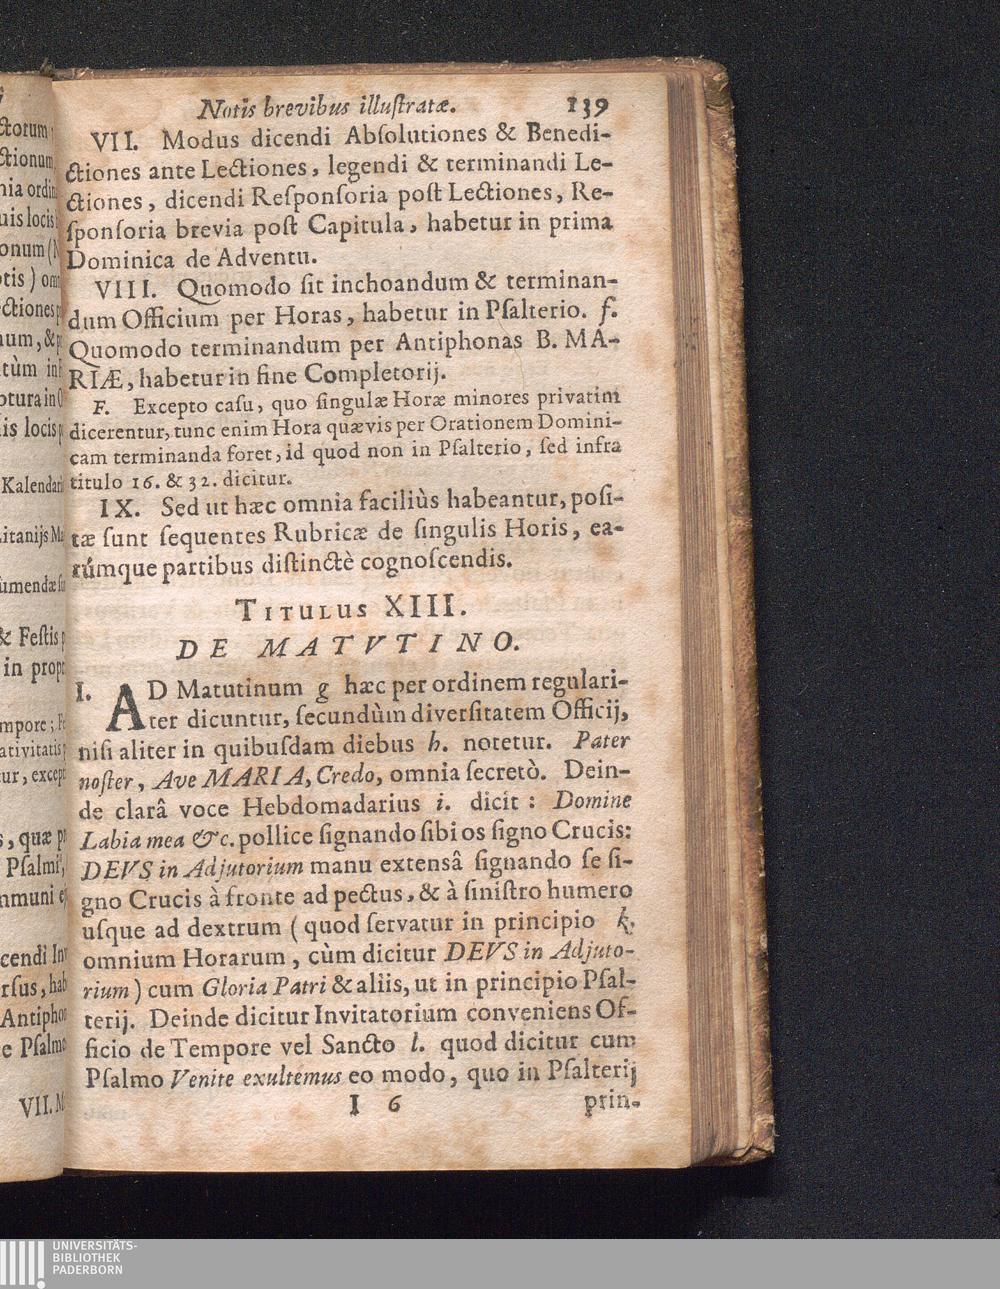 Notis brevibus illuſtratæ. 139
VII. Modus dicendi Abſolutiones & Benedi-
ctiones ante Lectiones, legendi & terminandi Le-
ctiones, dicendi Reſponſoria poſt Lectiones, Re-
ſponſoria brevia poſt Capitula, habetur in prima
Dominica de Adventu.
VIII. Quomodo ſit inchoandum & terminan-
dum Officium per Horas, habetur in Pſalterio. f.
Quomodo terminandum per Antiphonas B. MA-
RIÆ, habetur in fine Completorij.
F. Excepto caſu, quo ſingulæ Horæ minores privatim
dicerentur, tunc enim Hora quævis per Orationem Domini-
cam terminanda foret, id quod non in Pſalterio, ſed infra
titulo 16. & 32. dicitur.
IX. Sed ut hæc omnia faciliùs habeantur, poſi-
tæ ſunt ſequentes Rubricæ de ſingulis Horis, ea-
rúmque partibus diſtinctè cognoſcendis.
TITULUS XIII.
DE MATVTINO.
I. AD Matutinum g hæc per ordinem regulari-
ter dicuntur, ſecundùm diverſitatem Officij,
niſi aliter in quibuſdam diebus h. notetur. Pater
noſter, Ave MARIA, Credo, omnia ſecretò. Dein-
de clarâ voce Hebdomadarius i. dicit: Domine
Labia mea &c. pollice ſignando ſibi os ſigno Crucis:
DEVS in Adjutorium manu extensâ ſignando ſe ſi-
gno Crucis à fronte ad pectus, & à ſiniſtro humero
uſque ad dextrum (quod ſervatur in principio k.
omnium Horarum, cùm dicitur DEVS in Adjuto-
rium) cum Gloria Patri & aliis, ut in principio Pſal-
terij. Deinde dicitur Invitatorium conveniens Of-
ficio de Tempore vel Sancto l. quod dicitur cum
Pſalmo Venite exultemus eo modo, quo in Pſalterij
I 6 prin-
UNIVERSITÄTS-
BIBLIOTHEK
PADERBORN